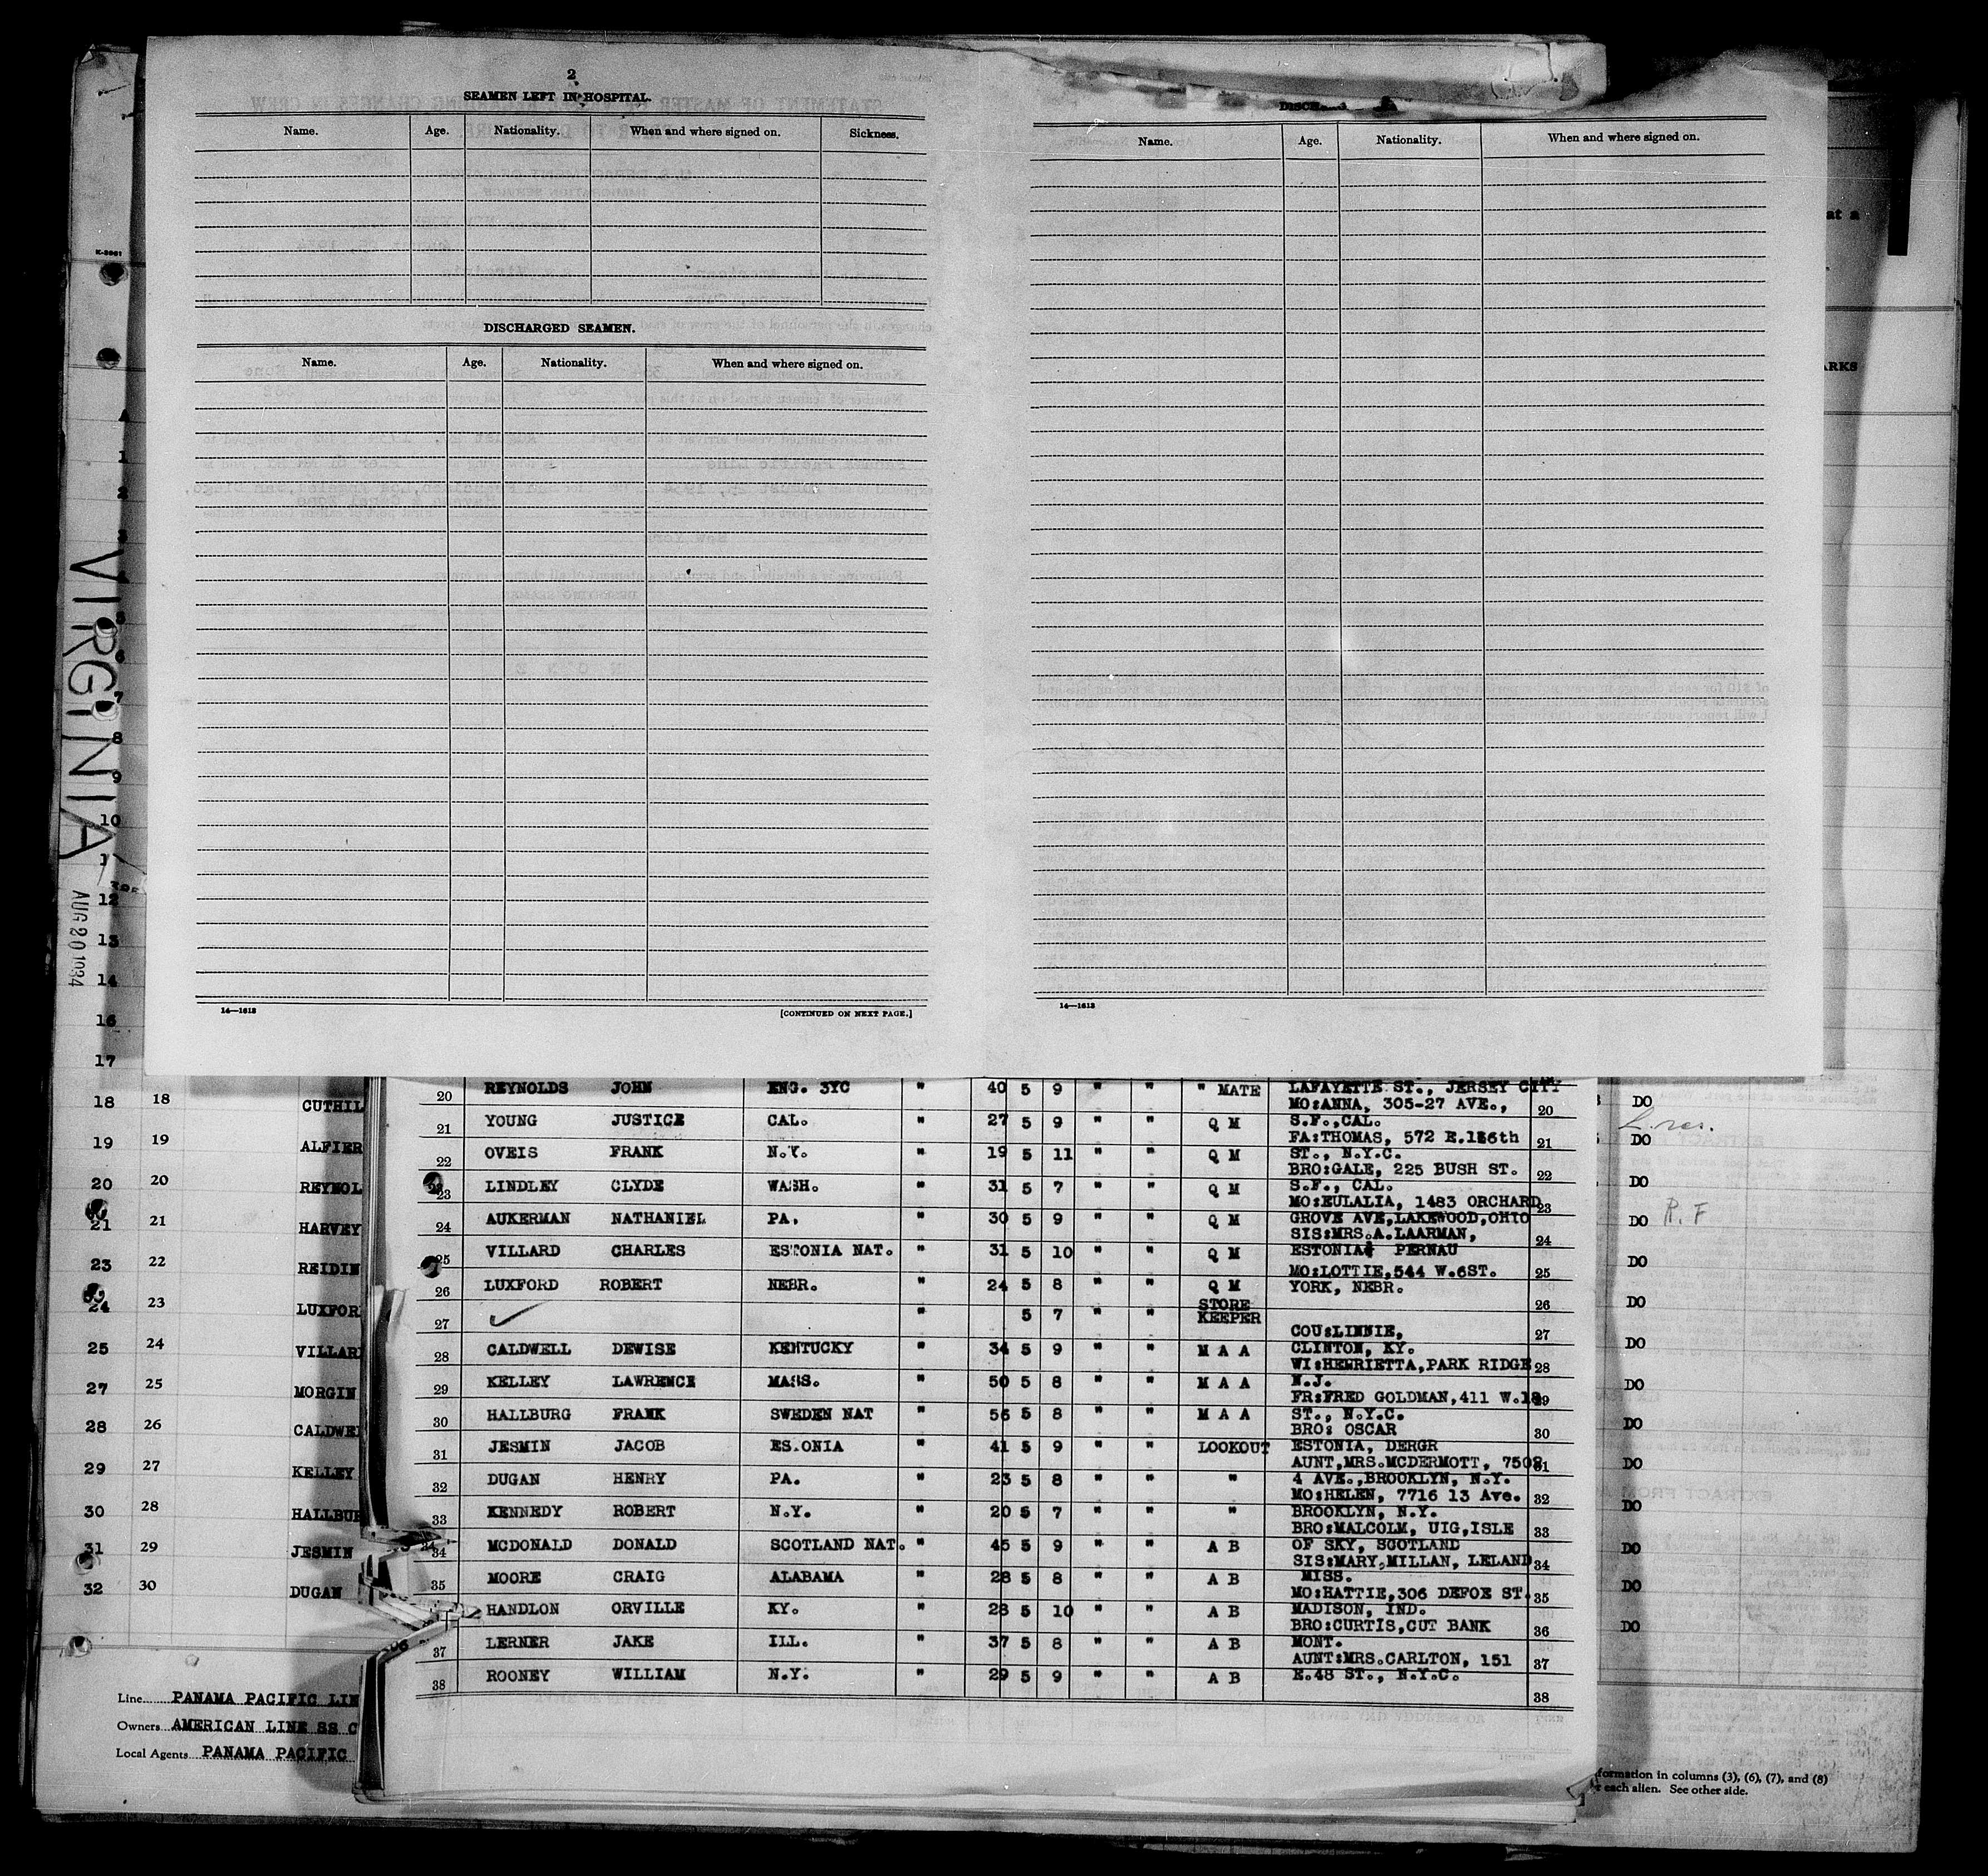 2
SEAMEN LEFT IN HOSPITAL.
Name. Age. Nationality. When and where signed on. Sickness.
DISCHARGED SEAMEN.
Name. Age. Nationality. When and where signed on.
14—1613
[CONTINUED ON NEXT PAGE.]
Name. Age. Nationality. When and where signed on.
14—1613
at a
ARKS
K-2061
VIRGINIA
AUG 20 1934
1
2
3
4
5
6
7
8
9
10
12
13
14
16
17
18 18 CUTHIL
19 19 ALFIER
20 20 REYNOL
21 21 HARVEY
23 22 REIDIN
24 23 LUXFOR
25 24 VILLARD
27 25 MORGIN
28 26 CALDWEL
29 27 KELLEY
30 28 HALLBUR
31 29 JESMIN
32 30 DUGAN
Line PANAMA PACIFIC LIN
Owners AMERICAN LINE SS C
Local Agents PANAMA PACIFIC
20 REYNOLDS JOHN ENG. 3YC " 40 5 9 " " " MATE LAFAYETTE ST., JERSEY CITY
MO:ANNA, 305-27 AVE., 20
21 YOUNG JUSTICE CAL. " 27 5 9 " " Q M S.F.,CAL.
FA:THOMAS, 572 E.186th 21
22 OVEIS FRANK N.Y. " 19 5 11 " " Q M ST., N.Y.C.
BRO:GALE, 225 BUSH ST. 22
23 LINDLEY CLYDE WASH. " 31 5 7 " " Q M S.F., CAL.
MO:EULALIA, 1483 ORCHARD 23
24 AUKERMAN NATHANIEL PA. " 30 5 9 " " Q M GROVE AVE,LAKEWOOD,OHIO
SIS:MRS.A.LAARMAN, 24
25 VILLARD CHARLES ESTONIA NAT. " 31 5 10 " " Q M ESTONIA PERNAU
MO:LOTTIE,544 W.6ST. 25
26 LUXFORD ROBERT NEBR. " 24 5 8 " " Q M YORK, NEBR.
26
27 " 5 7 " " STORE KEEPER
COU:LINNIE, 27
28 CALDWELL DEWISE KENTUCKY " 34 5 9 " " M A A CLINTON, KY.
WI:HENRIETTA,PARK RIDGE 28
29 KELLEY LAWRENCE MASS. " 50 5 8 " " M A A N.J.
FR:FRED GOLDMAN,411 W.18 29
30 HALLBURG FRANK SWEDEN NAT " 56 5 8 " " M A A ST., N.Y.C.
BRO: OSCAR 30
31 JESMIN JACOB ES.ONIA " 41 5 9 " " LOOKOUT ESTONIA, DERGR
AUNT,MRS.MCDERMOTT, 7502 31
32 DUGAN HENRY PA. " 23 5 8 " " " 4 AVE.,BROOKLYN, N.Y.
MO:HELEN, 7716 13 Ave. 32
33 KENNEDY ROBERT N.Y. " 20 5 7 " " " BROOKLYN, N.Y.
BRO:MALCOLM, UIG,ISLE 33
34 MCDONALD DONALD SCOTLAND NAT. " 45 5 9 " " A B OF SKY, SCOTLAND
SIS:MARY.MILLAN, LELAND 34
35 MOORE CRAIG ALABAMA " 28 5 8 " " A B MISS.
MO:HATTIE,306 DEFOE ST. 35
HANDLON ORVILLE KY. " 28 5 10 " " A B MADISON, IND.
BRO:CURTIS,CUT BANK 36
37 LERNER JAKE ILL. " 37 5 8 " " A B MONT.
AUNT:MRS.CARLTON, 151 37
38 ROONEY WILLIAM N.Y. " 29 5 9 " " A B E.48 ST., N.Y.C.
38
DO
DO
DO
DO R. F
DO
DO
DO
DO
DO
DO
DO
DO
DO
DO
formation in columns (3), (6), (7), and (8)
r each alien. See other side.